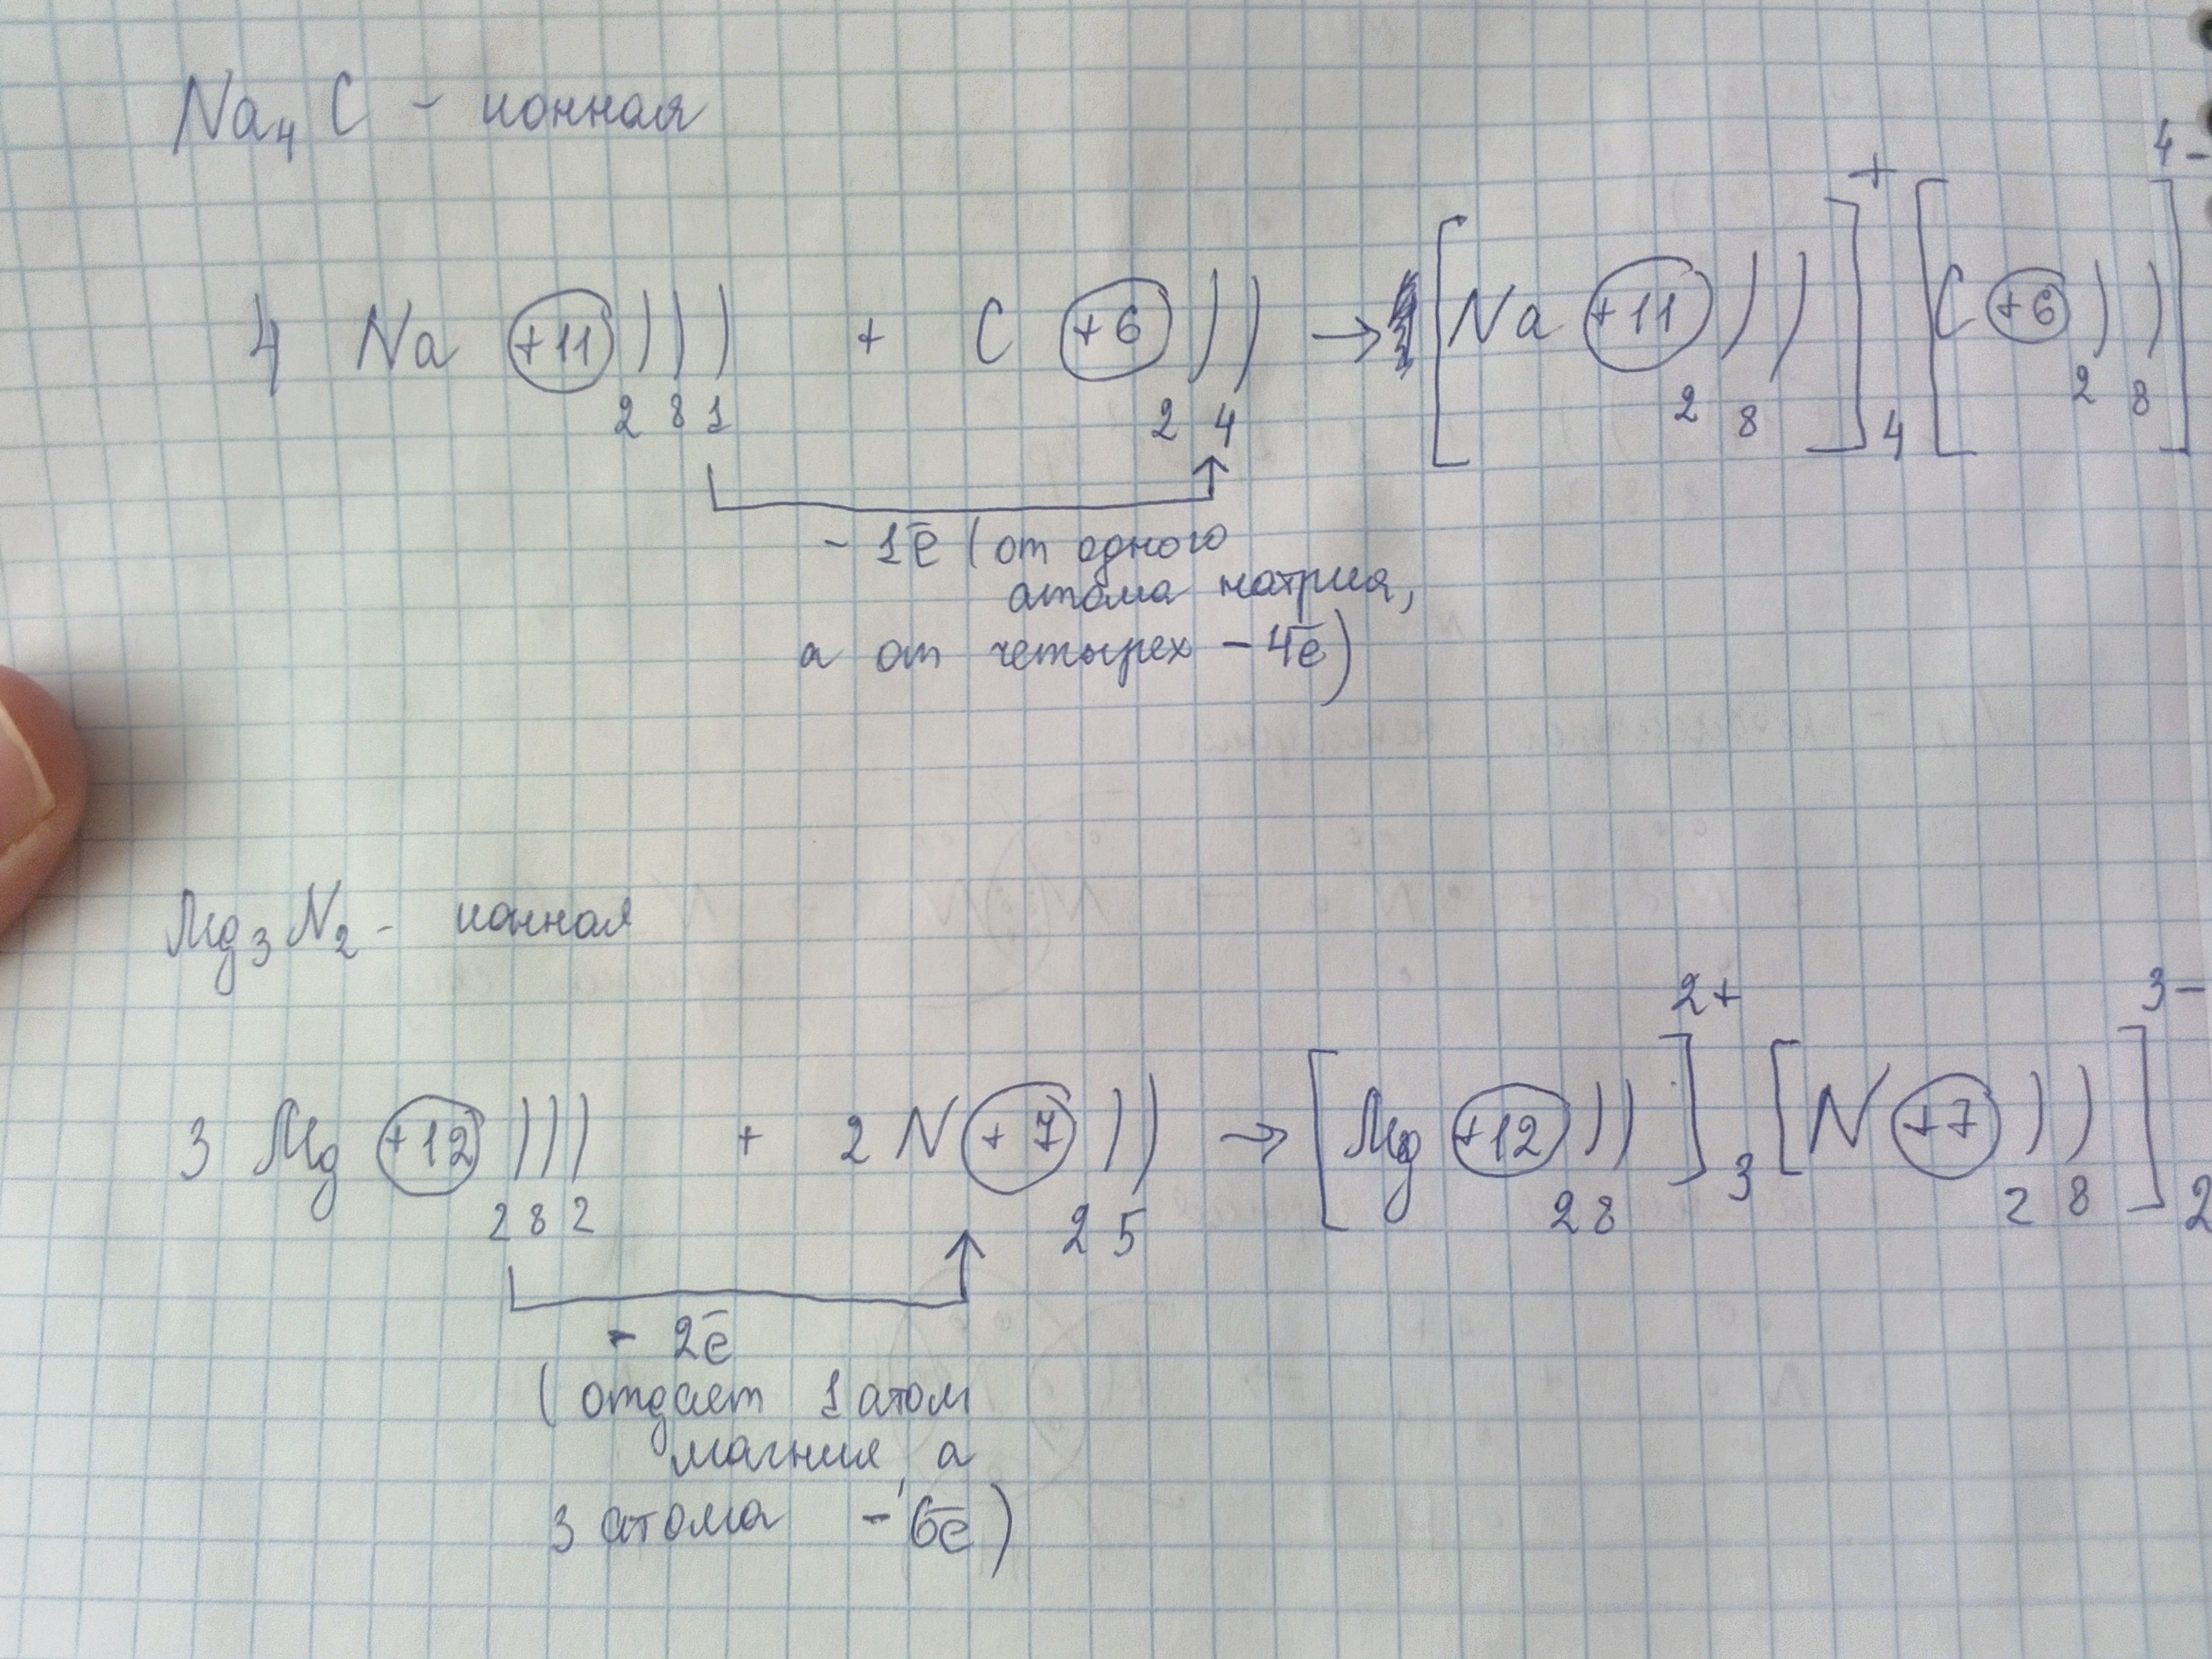 Na₄C - ионная
4 Na +11 ) ) ) + C +6 ) ) → [Na +11 ) ) ]⁺₄ [C +6 ) ) ]⁴⁻
2 8 1 2 4 2 8 2 8
- 1ē (от одного
атома натрия,
а от четырех - 4ē)
Mg₃N₂ - ионная
3 Mg +12 ) ) ) + 2 N +7 ) ) → [Mg +12 ) ) ]²⁺₃ [N +7 ) ) ]³⁻₂
2 8 2 2 5 2 8 2 8
- 2ē
(отдает 1 атом
магния, а
3 атома - 6ē)